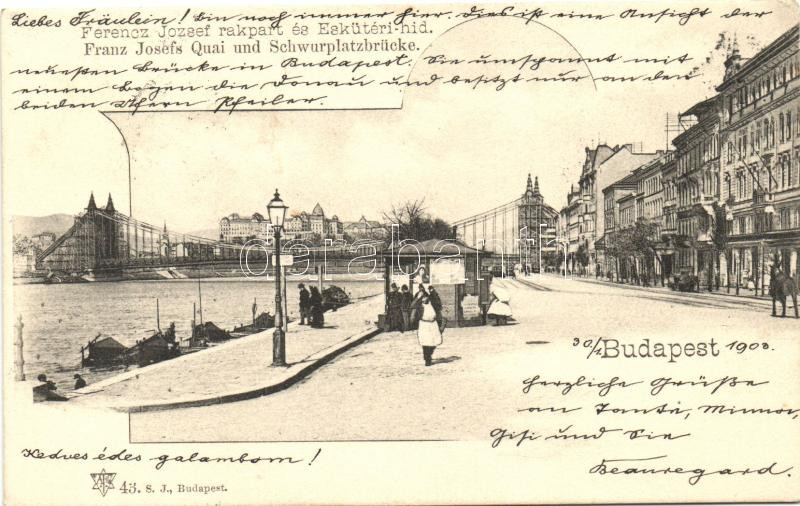 Liebes Fräulein! Bin noch immer hier. Dies ist eine Ansicht der
Ferencz József rakpart és Eskütéri-hid.
Franz Josefs Quai und Schwurplatzbrücke.
neuesten Brücke in Budapest. Sie umspannt mit
einem Bogen die Donau und besitzt nur an den
beiden Ufern Pfeiler.
darabanth
30/1. Budapest 1903.
Herzliche Grüße
an Tante, Minna,
Gisi und Sie
Beauregard.
Kedves édes galambom!
43. S. J., Budapest.